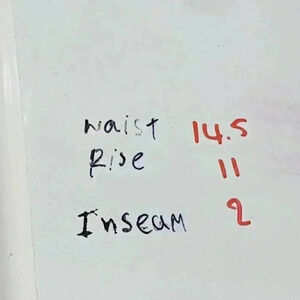 Waist 14.5
Rise 11
Inseam 2